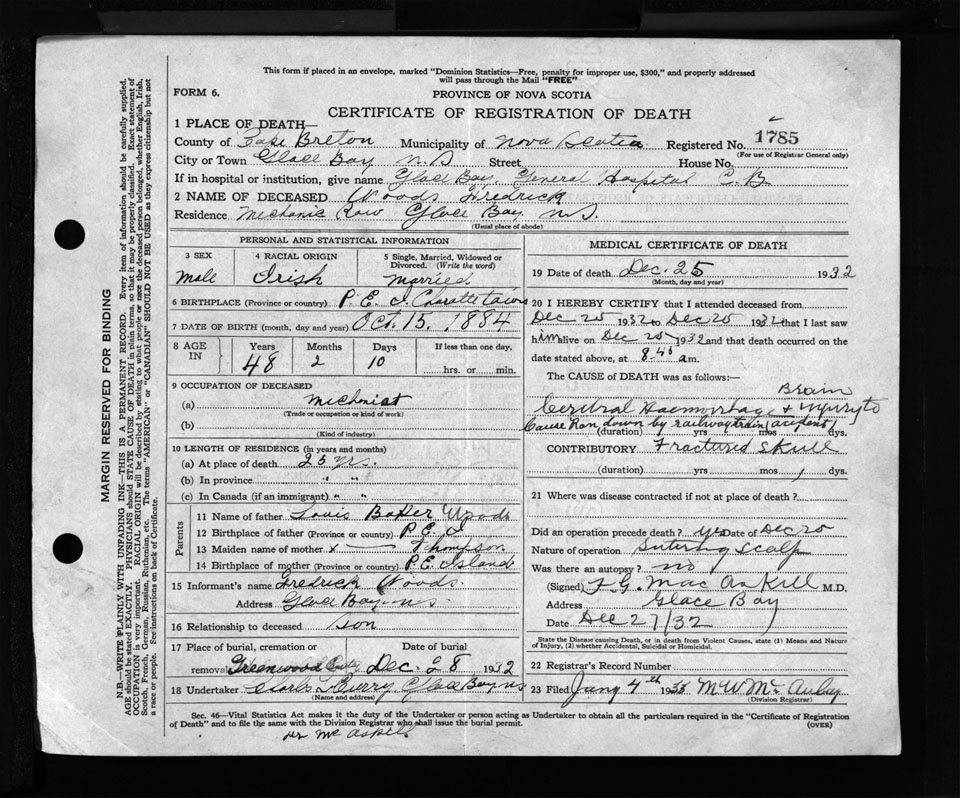 This form if placed in an envelope, marked "Dominion Statistics—Free, penalty for improper use, $300," and properly addressed
will pass through the Mail "FREE"
FORM 6.
PROVINCE OF NOVA SCOTIA
CERTIFICATE OF REGISTRATION OF DEATH
1 PLACE OF DEATH—
County of Cape Breton Municipality of Nova Scotia Registered No. 1785
(For use of Registrar General only)
City or Town Glace Bay N.S Street House No.
If in hospital or institution, give name Glace Bay, General Hospital C.B
2 NAME OF DECEASED Woods Fredrick
Residence Mechanic Row Glace Bay NS.
(Usual place of abode)
PERSONAL AND STATISTICAL INFORMATION
3 SEX 4 RACIAL ORIGIN 5 Single, Married, Widowed or Divorced. (Write the word)
Male Irish Married
6 BIRTHPLACE (Province or country) P.E.I. Charottetown
7 DATE OF BIRTH (month, day and year) Oct. 15. 1884
8 AGE IN Years Months Days If less than one day,
48 2 10 hrs. or min.
9 OCCUPATION OF DECEASED
(a) Mechanist
(Trade or occupation or kind of work)
(b)
(Kind of industry)
10 LENGTH OF RESIDENCE (in years and months)
(a) At place of death 25 yr.
(b) In province " "
(c) In Canada (if an immigrant) " "
Parents
11 Name of father Louis Baker Woods
12 Birthplace of father (Province or country) P.E.I
13 Maiden name of mother x — Thompson
14 Birthplace of mother (Province or country) P.E. Island
15 Informant's name Fredrick Woods.
Address Glace Bay NS
16 Relationship to deceased son
17 Place of burial, cremation or removal Date of burial
Greenwood Dec. 28 1932
18 Undertaker Curry Glace Bay NS
(Name and address)
MEDICAL CERTIFICATE OF DEATH
19 Date of death Dec. 25 1932
(Month, day and year)
20 I HEREBY CERTIFY that I attended deceased from
Dec 25 1932 to Dec 25 1932 that I last saw
him alive on Dec 25 1932 and that death occurred on the
date stated above, at 8.40 am.
The CAUSE OF DEATH was as follows:
Brain
Cerebral Haemorrhage & injury to
Cause Ran down by railway train (accident)
(duration) yrs mos dys.
CONTRIBUTORY Fractured Skull
(duration) yrs mos dys.
21 Where was disease contracted if not at place of death?
Did an operation precede death? yes Date of Dec 25
Nature of operation Sutering scalp
Was there an autopsy? no
(Signed) F.G. Mac Askill M.D.
Address Glace Bay
Date Dec 27/32
State the Disease causing Death, or in death from Violent Causes, state (1) Means and Nature
of Injury, (2) whether Accidental, Suicidal or Homicidal.
22 Registrar's Record Number
23 Filed Jany 4th 1933 M W McAulay
(Division Registrar)
Sec. 46—Vital Statistics Act makes it the duty of the Undertaker or person acting as Undertaker to obtain all the particulars required in the "Certificate of Registration
of Death" and to file the same with the Division Registrar who shall issue the burial permit. (OVER)
Dr McAskill
MARGIN RESERVED FOR BINDING
N.B.—WRITE PLAINLY WITH UNFADING INK—THIS IS A PERMANENT RECORD. Every item of information should be carefully supplied.
AGE should be stated EXACTLY. PHYSICIANS should STATE CAUSE OF DEATH in plain terms, so that it may be properly classified. Exact statement of
OCCUPATION is very important. RACIAL ORIGIN will be described by stating to what people or race the deceased person belonged, whether English, Irish,
Scotch, French, German, Russian, Ruthenian, etc. The terms "AMERICAN" or "CANADIAN" SHOULD NOT BE USED as they express citizenship but not
a race or people. See instructions on back of Certificate.